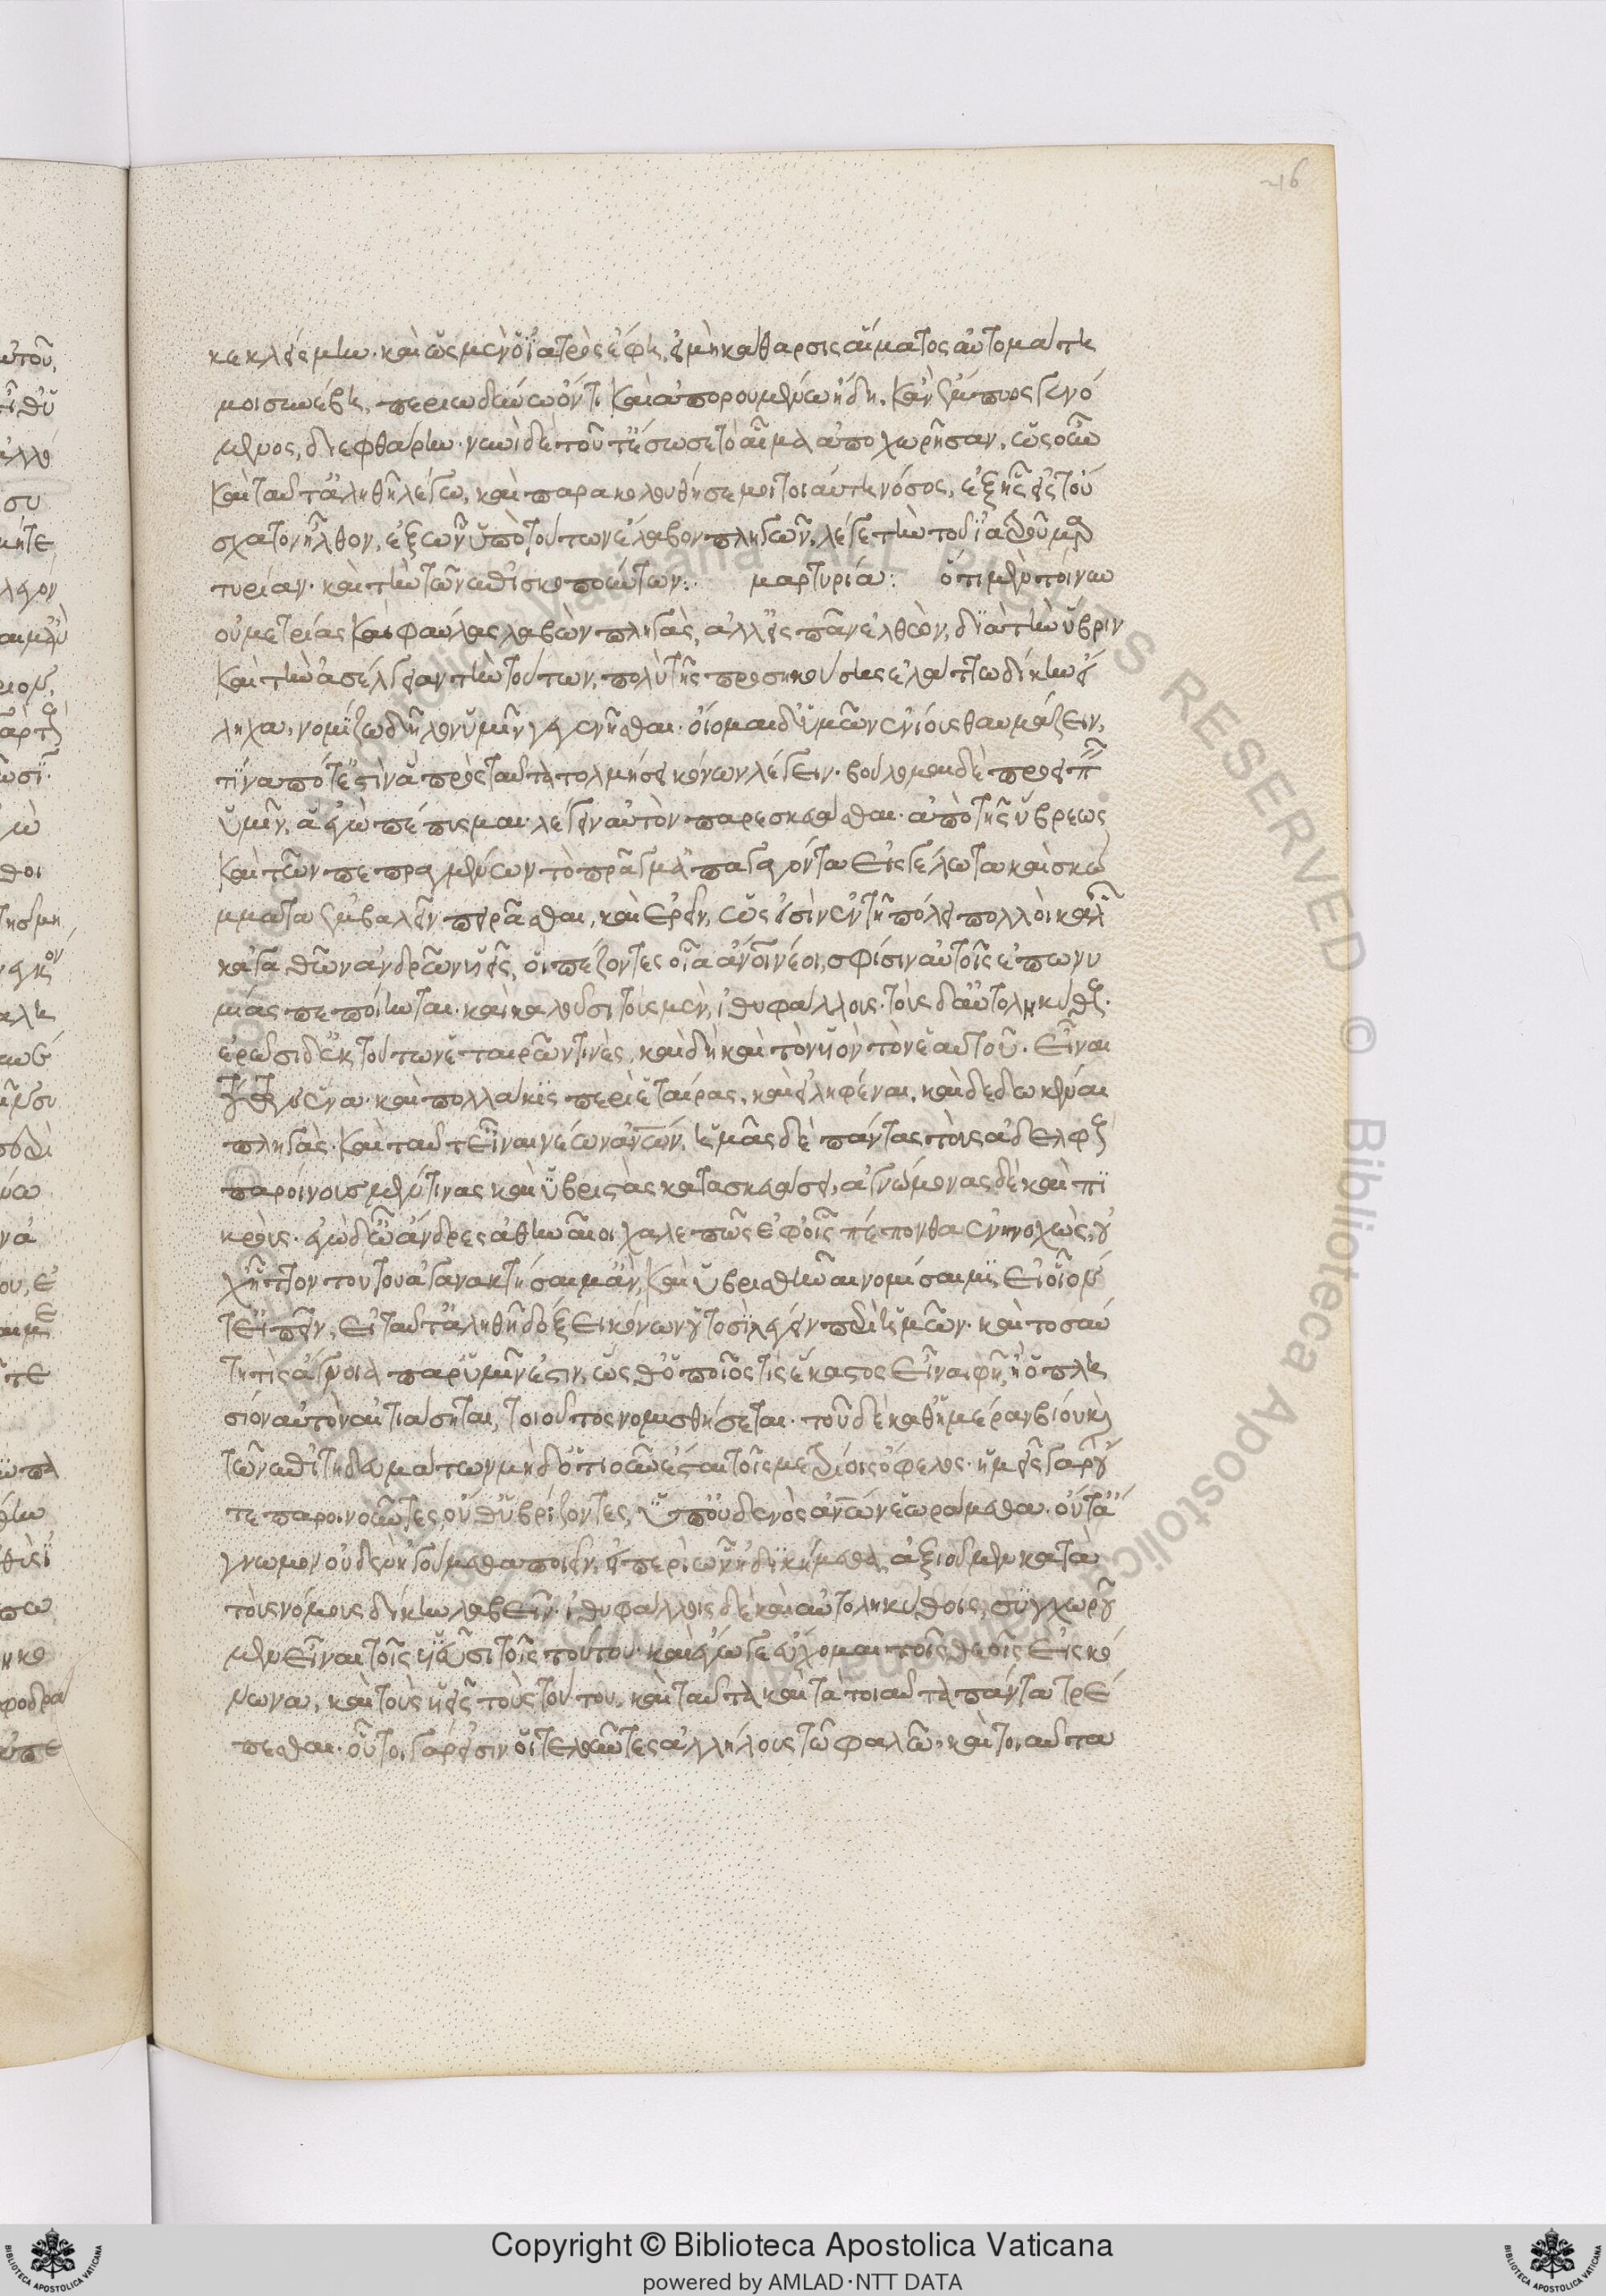 κεκλείσμην· καὶ ὡς μὲν ὁ ἰατρὸς ἔφη, εἰ μὴ κάθαρσις αἵματος αὐτομάτη
μοι συνέβη, περιωδύνῳ ὄντι καὶ ἀπορουμένῳ ἤδη, κἂν ἔμπυος γενό
μενος, διεφθάρην· νυνὶ δὲ τοῦτ' ἔσωσε τὸ αἷμα ἀποχωρῆσαν. ὡς οὖν
καὶ ταῦτ' ἀληθῆ λέγω, καὶ παρακολούθησέ μοι τοιαύτη νόσος, ἐξ ἧς εἰς τοὔ
σχατον ἦλθον, ἐξ ὧν ὑπὸ τούτων ἔλαβον πληγῶν, λέγε τὴν τοῦ ἰατροῦ μαρ
τυρίαν· καὶ τὴν τῶν ἐπισκοπούντων: μαρτυρία: ὅτι μὲν τοίνυν
οὐ μετρίας καὶ φαύλας λαβὼν πληγὰς, ἀλλ' εἰς πᾶν ἐλθὼν, διὰ τὴν ὕβριν
καὶ τὴν ἀσέλγειαν τὴν τούτων, πολὺ τῆς προσηκούσης ἐλάττω δίκην εἴ
ληχα, νομίζω δῆλον ὑμῖν γεγενῆσθαι· οἴομαι δ' ὑμῶν ἐνίους θαυμάζειν,
τίνα ποτ' ἐστὶν ἃ πρὸς ταῦτα τολμήσει κόνων λέγειν· βούλομαι δὲ προειπεῖν
ὑμῖν, ἃ ἐγὼ πέπυσμαι λέγειν αὐτὸν παρεσκευάσθαι· ἀπὸ τῆς ὕβρεως
καὶ τῶν πεπραγμένων τὸ πρᾶγμ' ἀπάγοντα εἰς γέλωτα καὶ σκώ
μματα ἐμβαλεῖν πειρᾶσθαι, καὶ ἐρεῖν, ὡς εἰσὶν ἐν τῇ πόλει πολλοὶ καλῶν
κἀγαθῶν ἀνδρῶν υἱεῖς, οἳ παίζοντες οἷα ἄνθρωποι νέοι, σφίσιν αὐτοῖς ἐπωνυ
μίας πεποίηνται· καὶ καλοῦσι τοὺς μὲν, ἰθυφάλλους· τοὺς δ' αὐτοληκύθους·
ἐρῶσι δ' ἐκ τούτων ἑταιρῶν τινὲς, καὶ δὴ καὶ τὸν υἱὸν τὸν ἑαυτοῦ· εἶναι
τούτων ἕνα· καὶ πολλάκις περὶ ἑταίρας, καὶ εἰληφέναι, καὶ δεδωκέναι
πληγὰς· καὶ ταῦτ' εἶναι νέων ἀνθρώπων, ἡμᾶς δὲ πάντας τοὺς ἀδελφοὺς
παροίνους μέν τινας καὶ ὑβριστὰς κατασκευάσει, ἀγνώμονας δὲ καὶ πι
κρούς· ἐγὼ δ' ὦ ἄνδρες ἀθηναῖοι χαλεπῶς ἐφ' οἷς πέπονθα ἐνηνοχὼς, οὐ
χ ἧττον τοῦτο ἀγανακτήσαιμ' ἂν, καὶ ὑβρισθῆναι νομίσαιμι, εἰ οἷόν
τ' εἰπεῖν, εἰ ταῦτ' ἀληθῆ δόξει κόνων οὑτοσὶ λέγειν περὶ ἡμῶν· καὶ τοσαύ
τη τις ἄγνοια παρ' ὑμῖν ἐστιν, ὥσθ' ὁποῖος τις ἕκαστος εἶναι φῇ, ἢ ὁ πλη
σίον αὐτὸν αἰτιάσηται, τοιοῦτος νομισθήσεται· τοῦ δὲ καθ' ἡμέραν βίου καὶ
τῶν ἐπιτηδευμάτων μηδ' ὁτιοῦν ἔσται τοῖς μετρίοις ὄφελος· ἡμεῖς γὰρ οὔ
τε παροινοῦντες, οὔθ' ὑβρίζοντες, ὑπ' οὐδενὸς ἀνθρώπων ἑωράμεθα· οὔτ' ἄ
γνωμον οὐδὲν ἡγούμεθα ποιεῖν, εἰ περὶ ὧν ἠδικήμεθα, ἀξιοῦμεν κατὰ
τοὺς νόμους δίκην λαβεῖν· ἰθυφάλλοις δὲ καὶ αὐτοληκύθοις, συγχωροῦ
μεν εἶναι τοῖς υἱέσι τοῖς τούτου· καὶ ἔγωγε εὔχομαι τοῖς θεοῖς εἰς κό
νωνα, καὶ τοὺς υἱεῖς τοὺς τούτου, καὶ ταῦτα καὶ τὰ τοιαῦτα πάντα τρέ
πεσθαι· οὗτοι γάρ εἰσιν οἱ τελοῦντες ἀλλήλους τῷ ἰθυφάλλῳ, καὶ τοιαῦτα
Copyright © Biblioteca Apostolica Vaticana
powered by AMLAD·NTT DATA